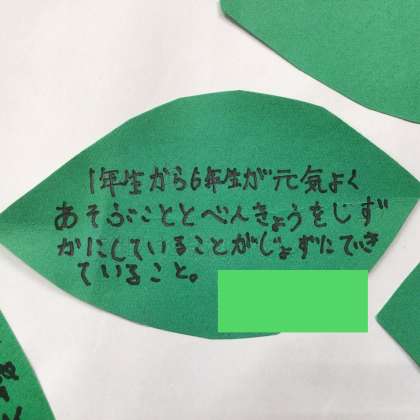 1年生から6年生が元気よく
あそぶこととべんきょうをしず
かにしていることがじょずにでき
ていること。